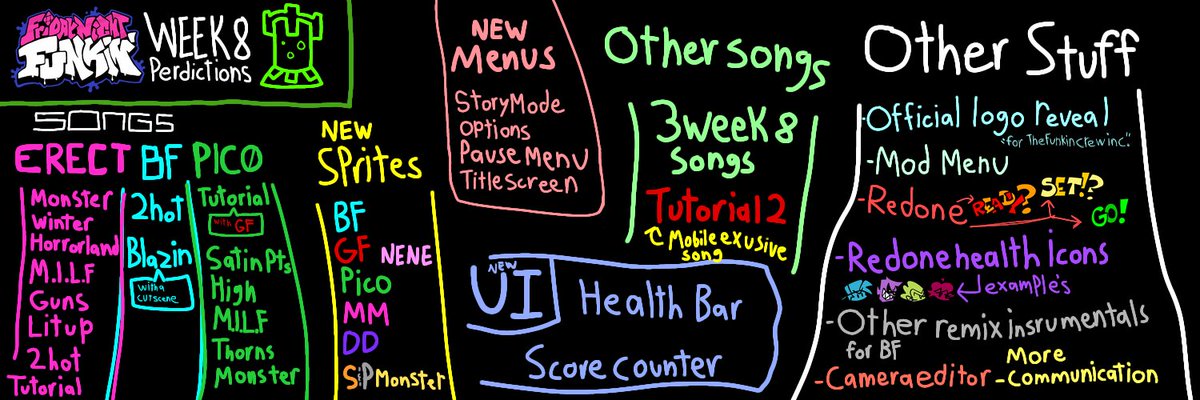 FRIDAY NIGHT
FUNKIN'
WEEK 8
Perdictions
SONGS
ERECT
Monster
Winter
Horrorland
M.I.L.F
Guns
Lit up
2hot
Tutorial
BF
2hot
Blazin
with a
cutscene
PICO
Tutorial
with GF
Satin Pts
High
M.I.L.F
Thorns
Monster
NEW
SPrites
BF
GF NENE
Pico
MM
DD
S&P Monster
NEW
Menus
Story Mode
options
Pause Menu
Title screen
NEW
UI
Health Bar
Score counter
Other songs
3 week 8
songs
Tutorial 2
Mobile exusive
song
Other Stuff
-Official logo reveal
"for The Funkin crew inc."
-Mod Menu
-Redone READY? SET!? GO!
-Redone health icons
example's
-Other remix insrumentals
for BF
-Camera editor
-More
Communication